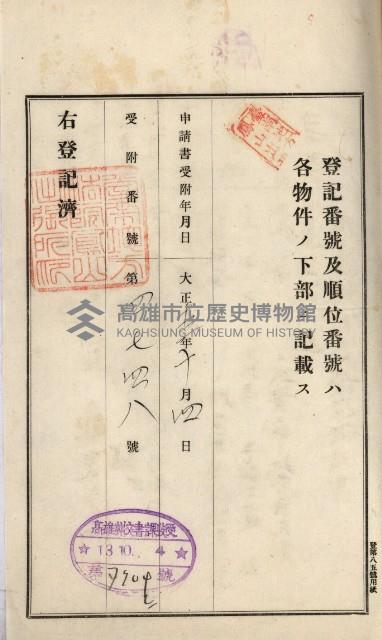 登記番號及順位番號ハ
各物件ノ下部ニ記載ス
申請書受附年月日 大正 年十月四日
受附番號 第四七四八號
右登記濟
高雄市立歷史博物館
KAOHSIUNG MUSEUM OF HISTORY
高雄州文書課收受
13.10. 4
第7904號
登第八五號用紙